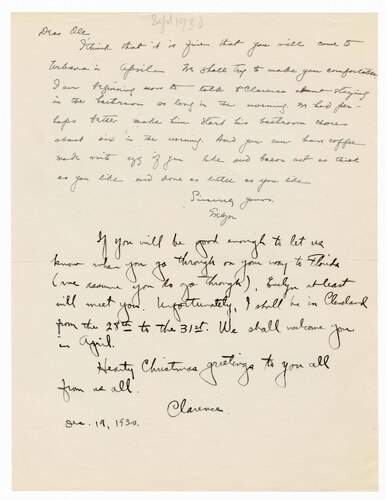 Sept 1930
Dear Ole
I think that it is fine that you will come to
Urbana in April. We shall try to make you comfortable
I am beginning now to talk to Clarence about staying
in the bathroom so long in the morning. We had per-
haps better make him start his bathroom chores
about six in the morning. And you can have coffee
made with egg if you like and bacon cut as thick
as you like and done as little as you like
Sincerely yours
Evelyn
If you will be good enough to let us
know when you go through on your way to Florida
(we assume you do go through), Evelyn at least
will meet you. Unfortunately, I shall be in Cleveland
from the 28th to the 31st. We shall welcome you
in April.
Hearty Christmas greetings to you all
from us all.
Clarence.
Dec. 19, 1930.